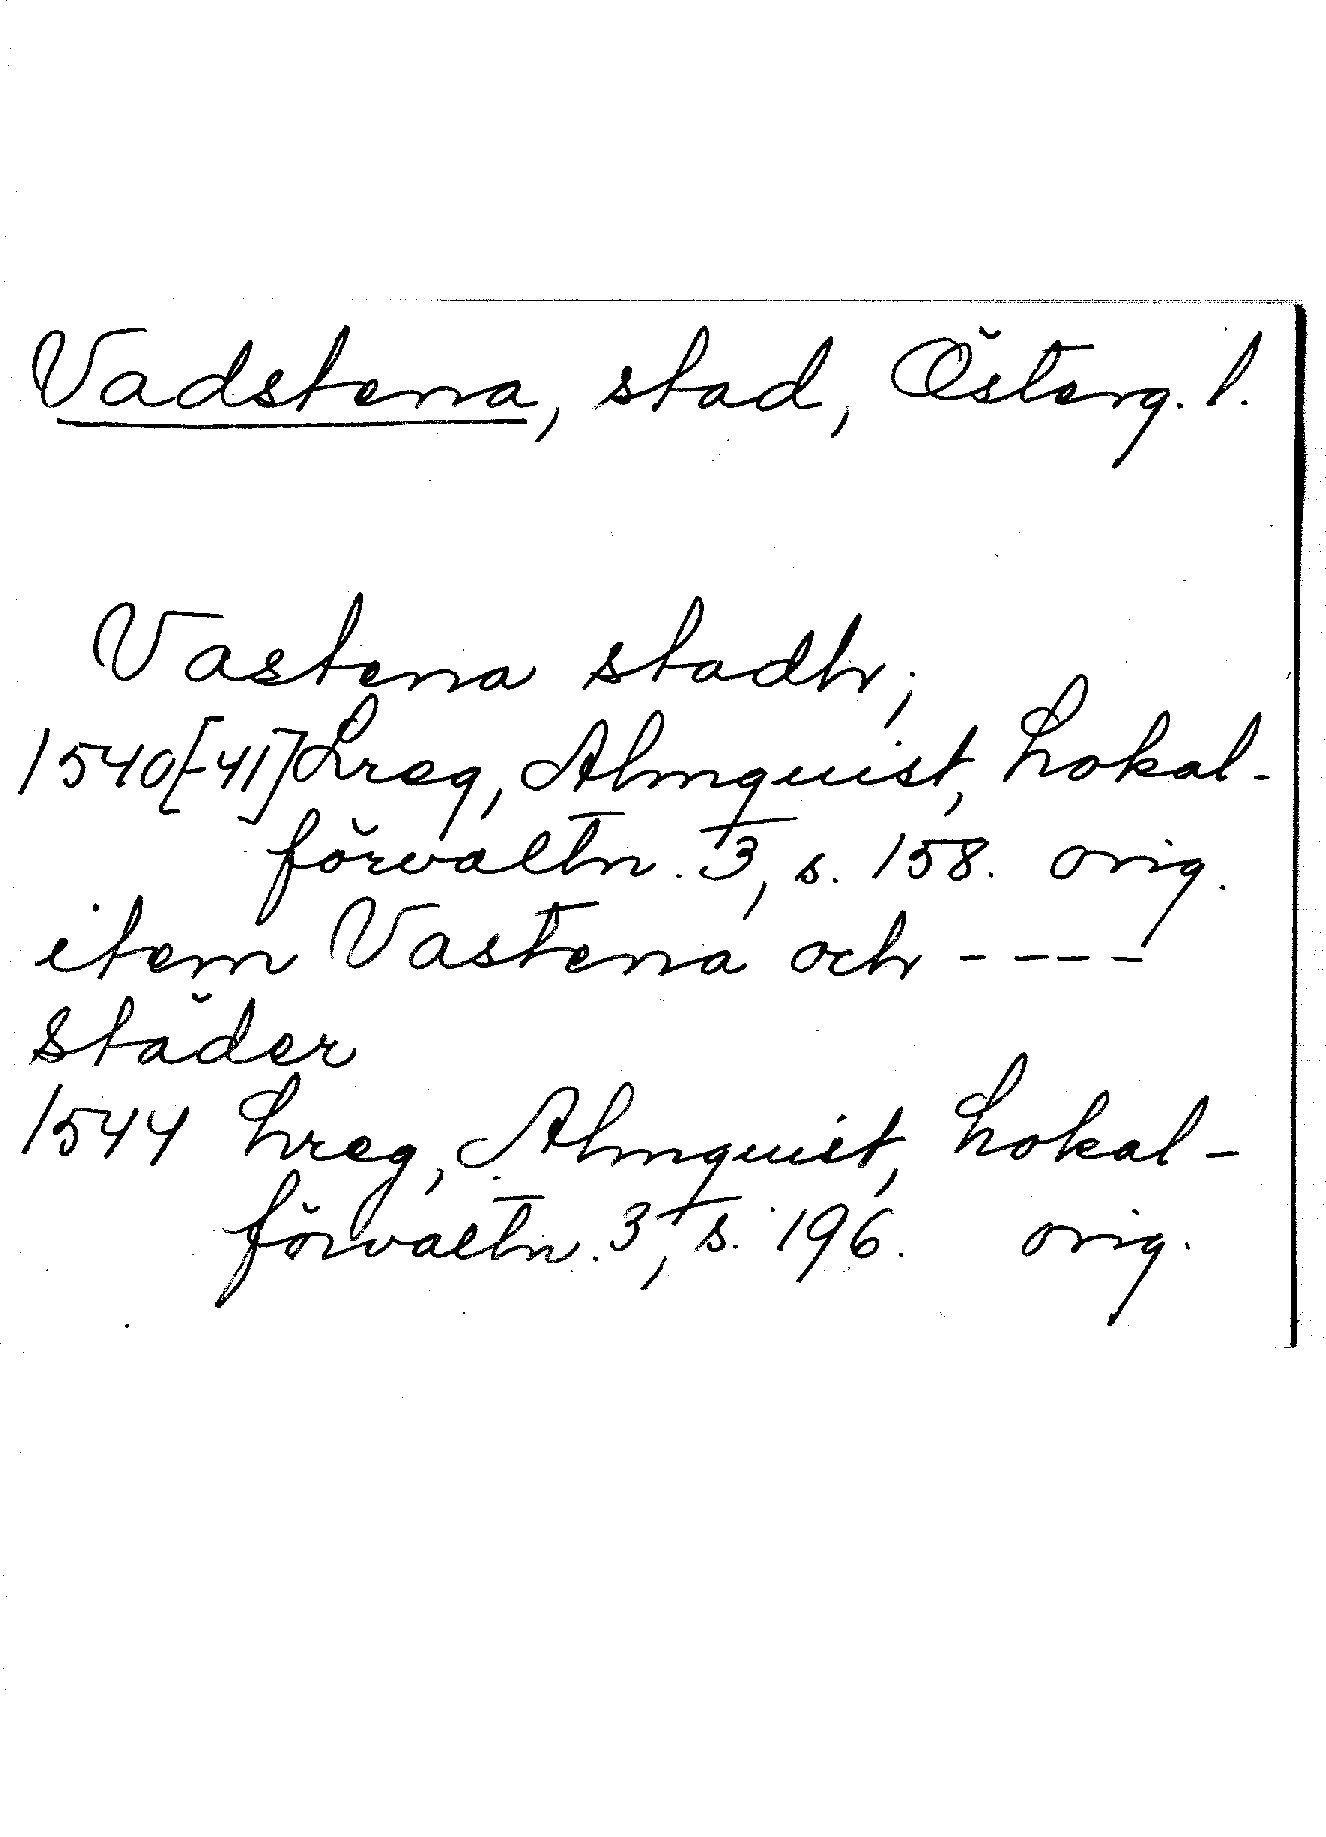 Vadstena, stad, Österg. l.
Vastena stadh,
1540[-41] Lreg, Almquist, Lokal-
förvaltn. 3, s. 158. orig.
item Vastena och ----
städer
1544 Lreg, Almquist, Lokal-
förvaltn. 3, s. 196. orig.